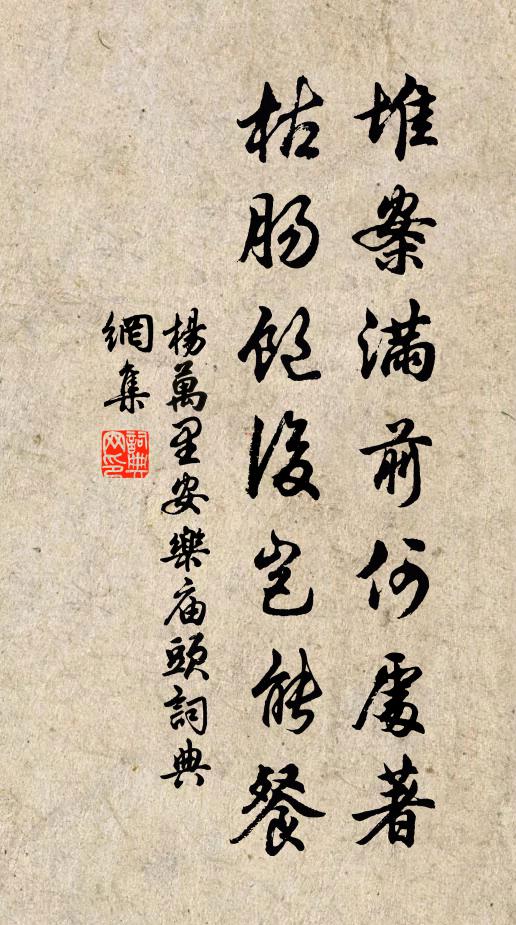 堆案滿前何處著
枯肠飽後岂能餐
楊萬里安樂庙頭詞典
網集
詞典
网印